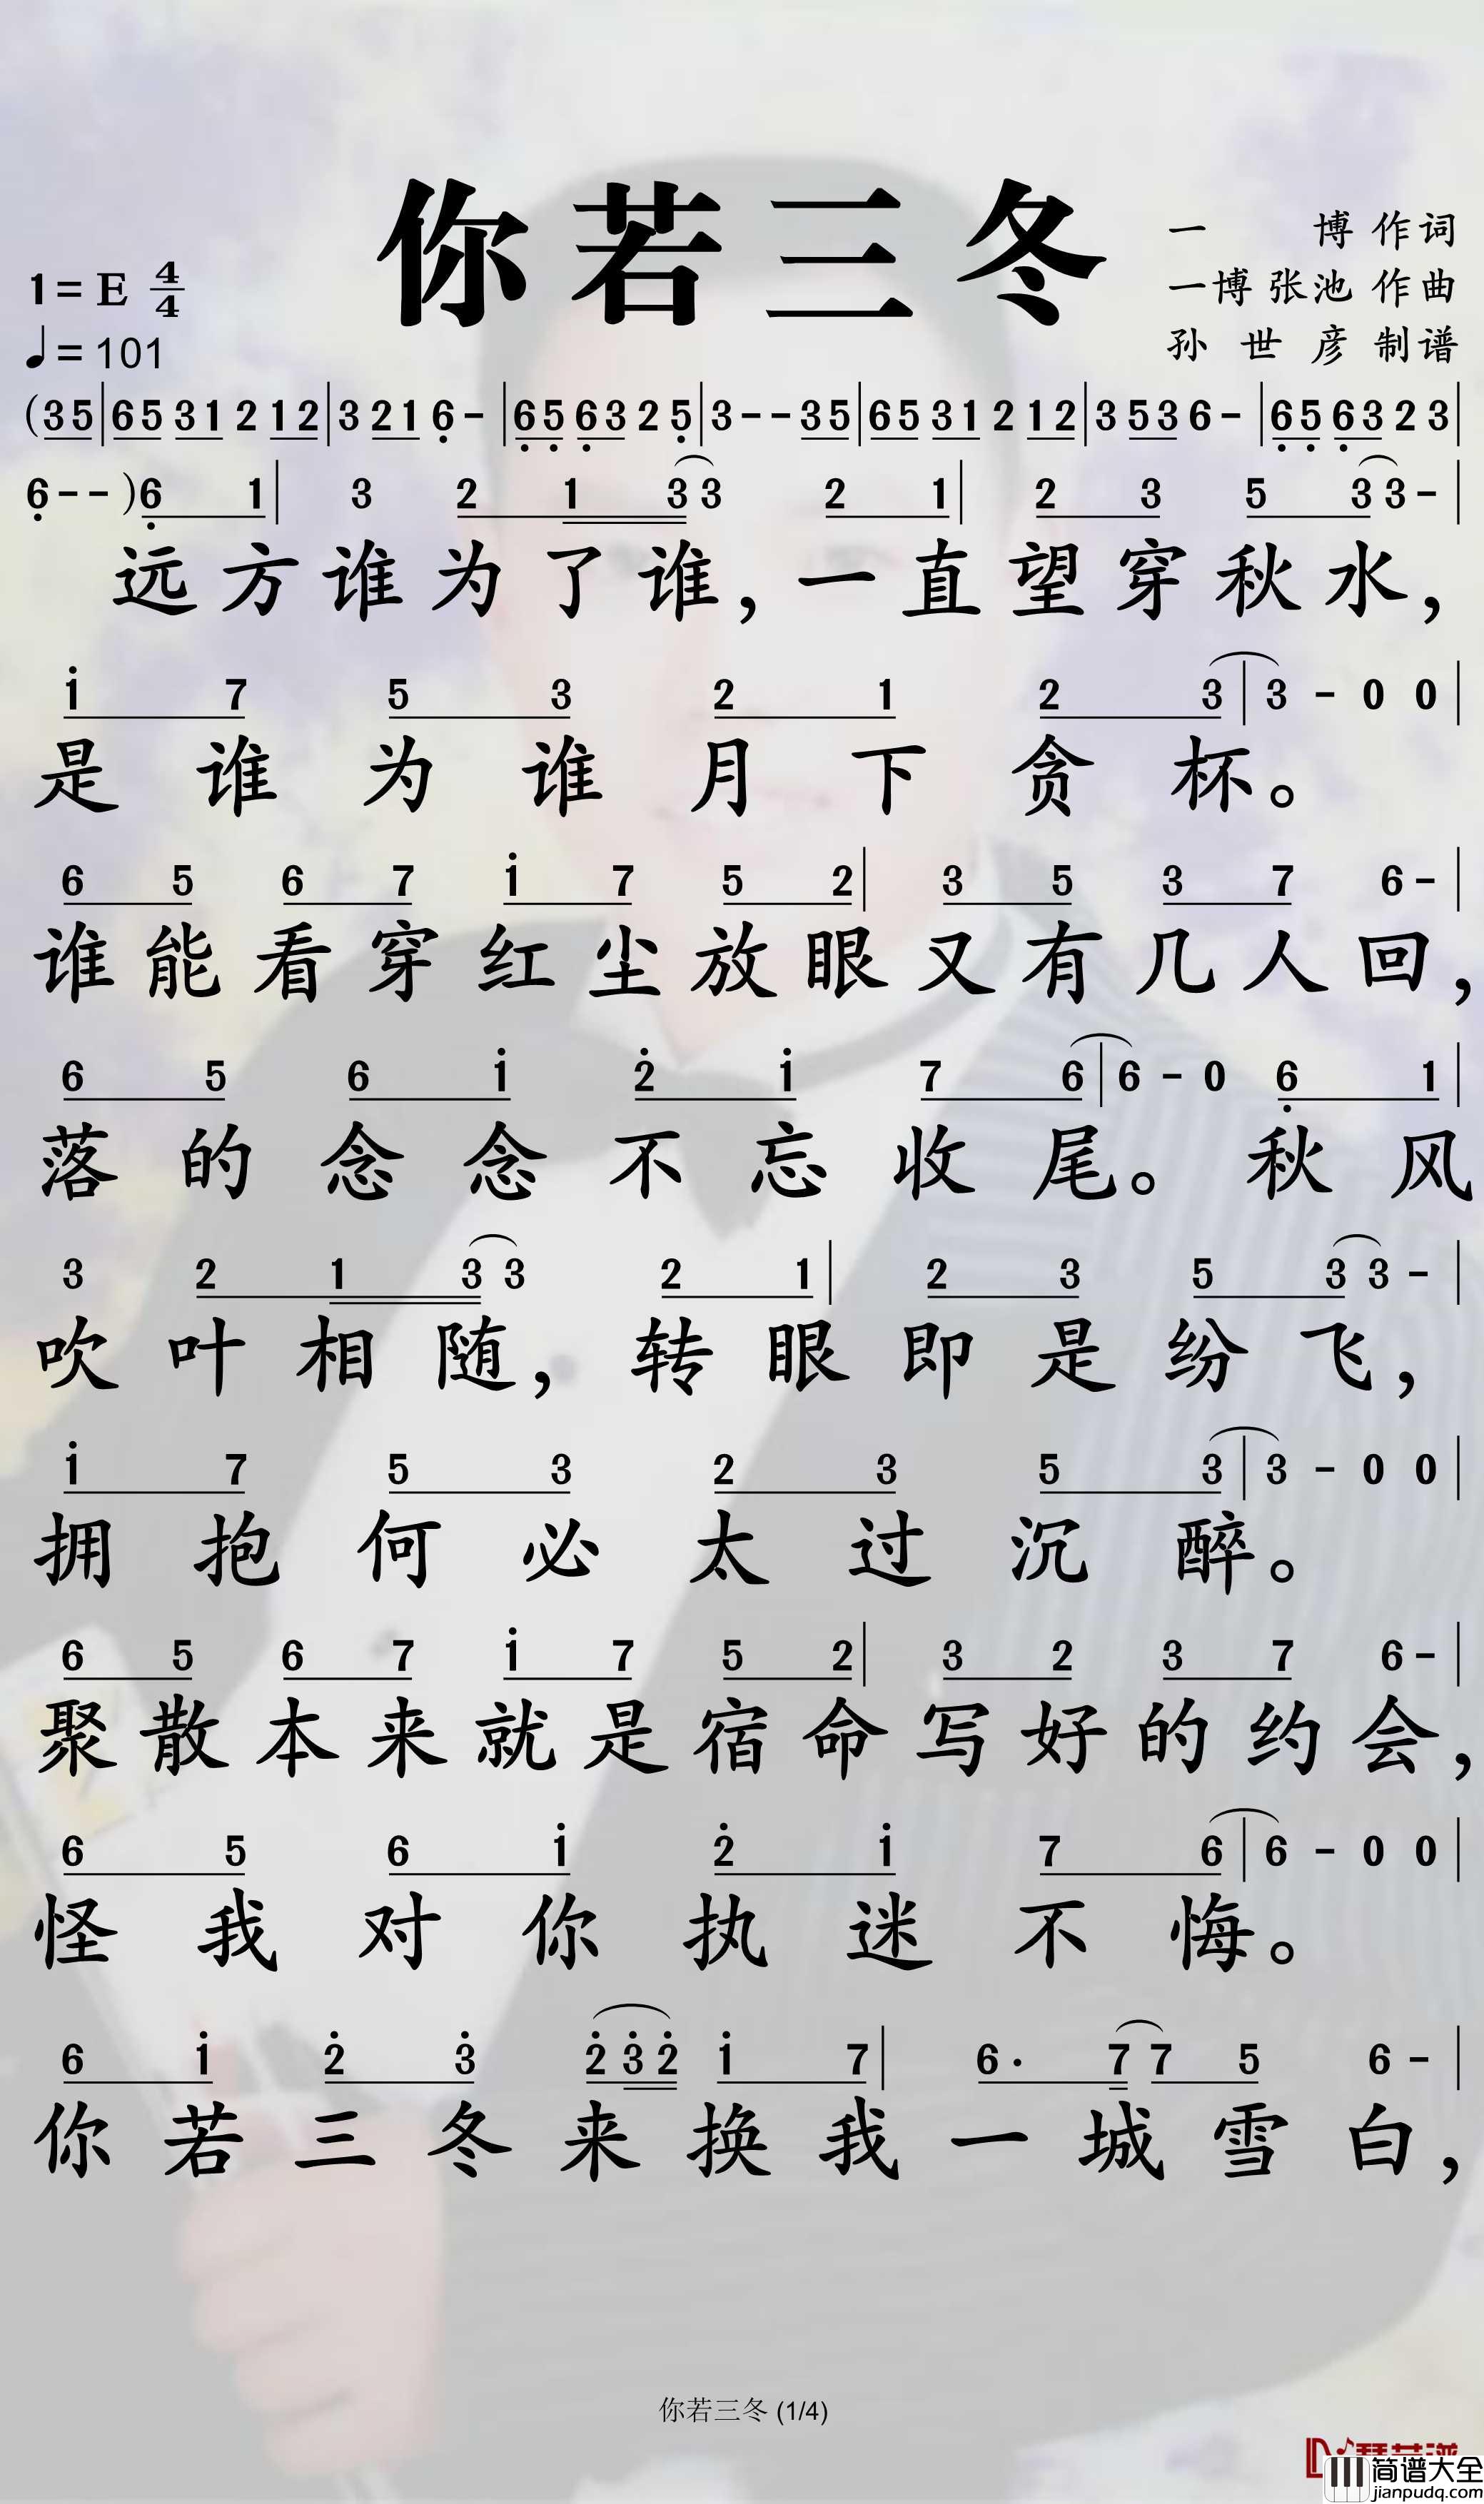 你若三冬
一 博 作词
一博 张池 作曲
孙 世 彦 制谱
1=E 4/4
♩=101
(35|65 31 2 12|3 21 6̣ -|6̣5̣ 6̣3 2 5̣|3 - - 35|65 31 2 12|3 53 6 -|6̣5̣ 6̣3 2 3|
6̣ - - )6̣ 1|3 2 1 3 3 2 1|2 3 5 3 3 -|
远方谁为了谁，一直望穿秋水，
i 7 5 3 2 1 2 3|3 - 0 0|
是谁为谁月下贪杯。
6 5 6 7 i 7 5 2|3 5 3 7 6 -|
谁能看穿红尘放眼又有几人回，
6 5 6 i 2̇ i 7 6|6 - 0 6̣ 1|
落的念念不忘收尾。秋风
3 2 1 3 3 2 1|2 3 5 3 3 -|
吹叶相随，转眼即是纷飞，
i 7 5 3 2 3 5 3|3 - 0 0|
拥抱何必太过沉醉。
6 5 6 7 i 7 5 2|3 2 3 7 6 -|
聚散本来就是宿命写好的约会，
6 5 6 i 2̇ i 7 6|6 - 0 0|
怪我对你执迷不悔。
6 i 2̇ 3̇ 2̇ 3̇ 2̇ i 7|6· 7 7 5 6 -|
你若三冬来换我一城雪白，
你若三冬 (1/4)
简谱大全
jianpudq.com